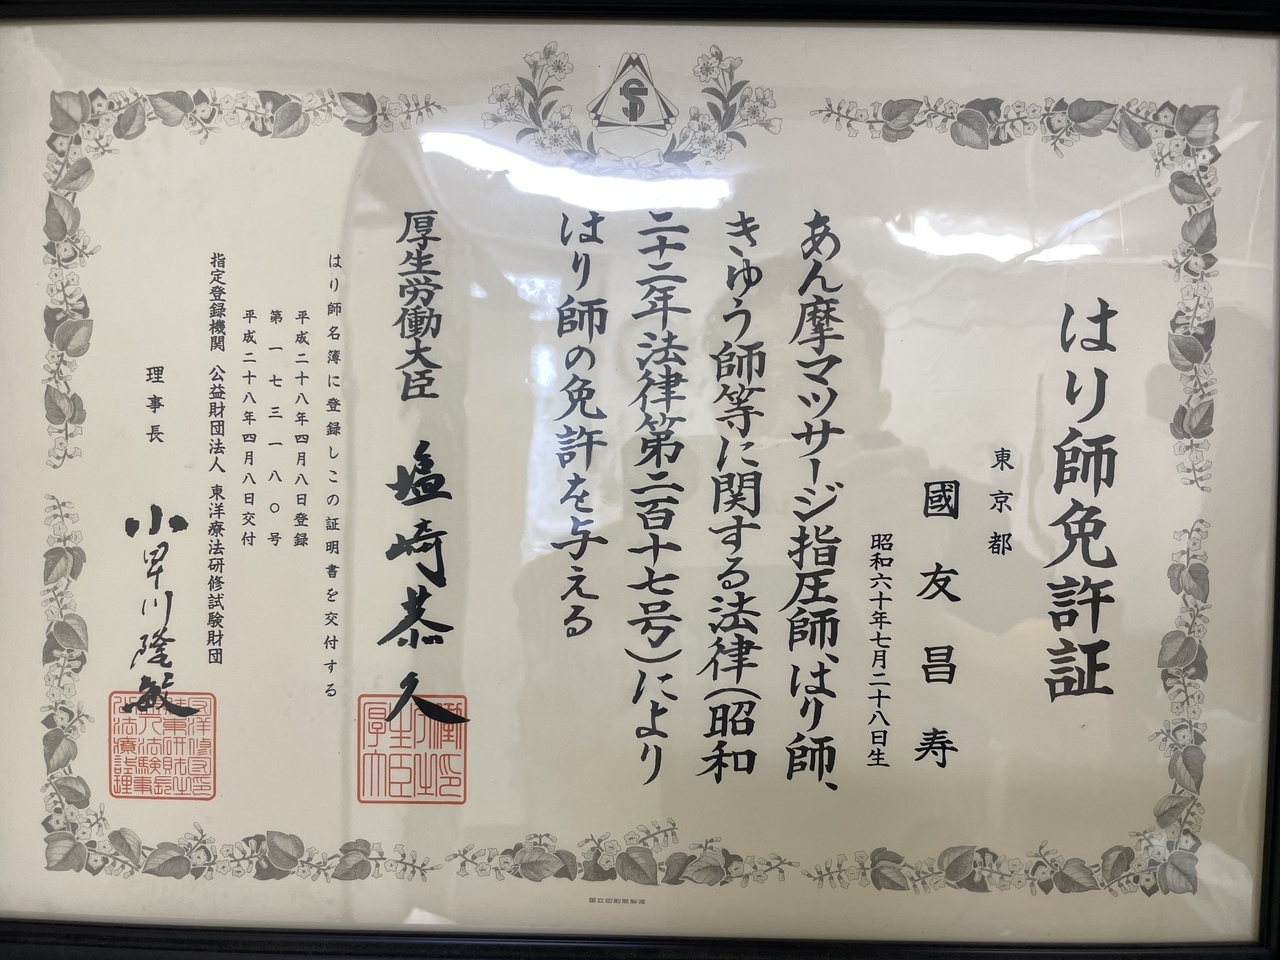 はり師免許証
東京都
國友昌寿
昭和六十年七月二十八日生
あん摩マツサージ指圧師、はり師、
きゆう師等に関する法律(昭和
二十二年法律第二百十七号)により
はり師の免許を与える
厚生労働大臣 塩崎恭久
はり師名簿に登録しこの証明書を交付する
平成二十八年四月八日登録
第一七三一八〇号
平成二十八年四月八日交付
指定登録機関 公益財団法人 東洋療法研修試験財団
理事長 小早川隆敏
国立印刷局製造